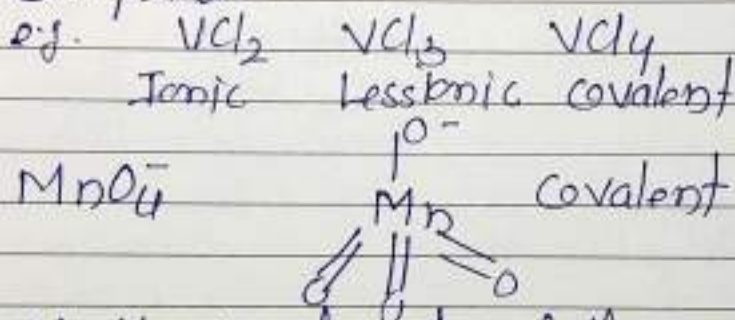 e.g. VCl2 VCl3 VCl4
Ionic Less Ionic Covalent
O-
MnO4- Mn Covalent
O O O